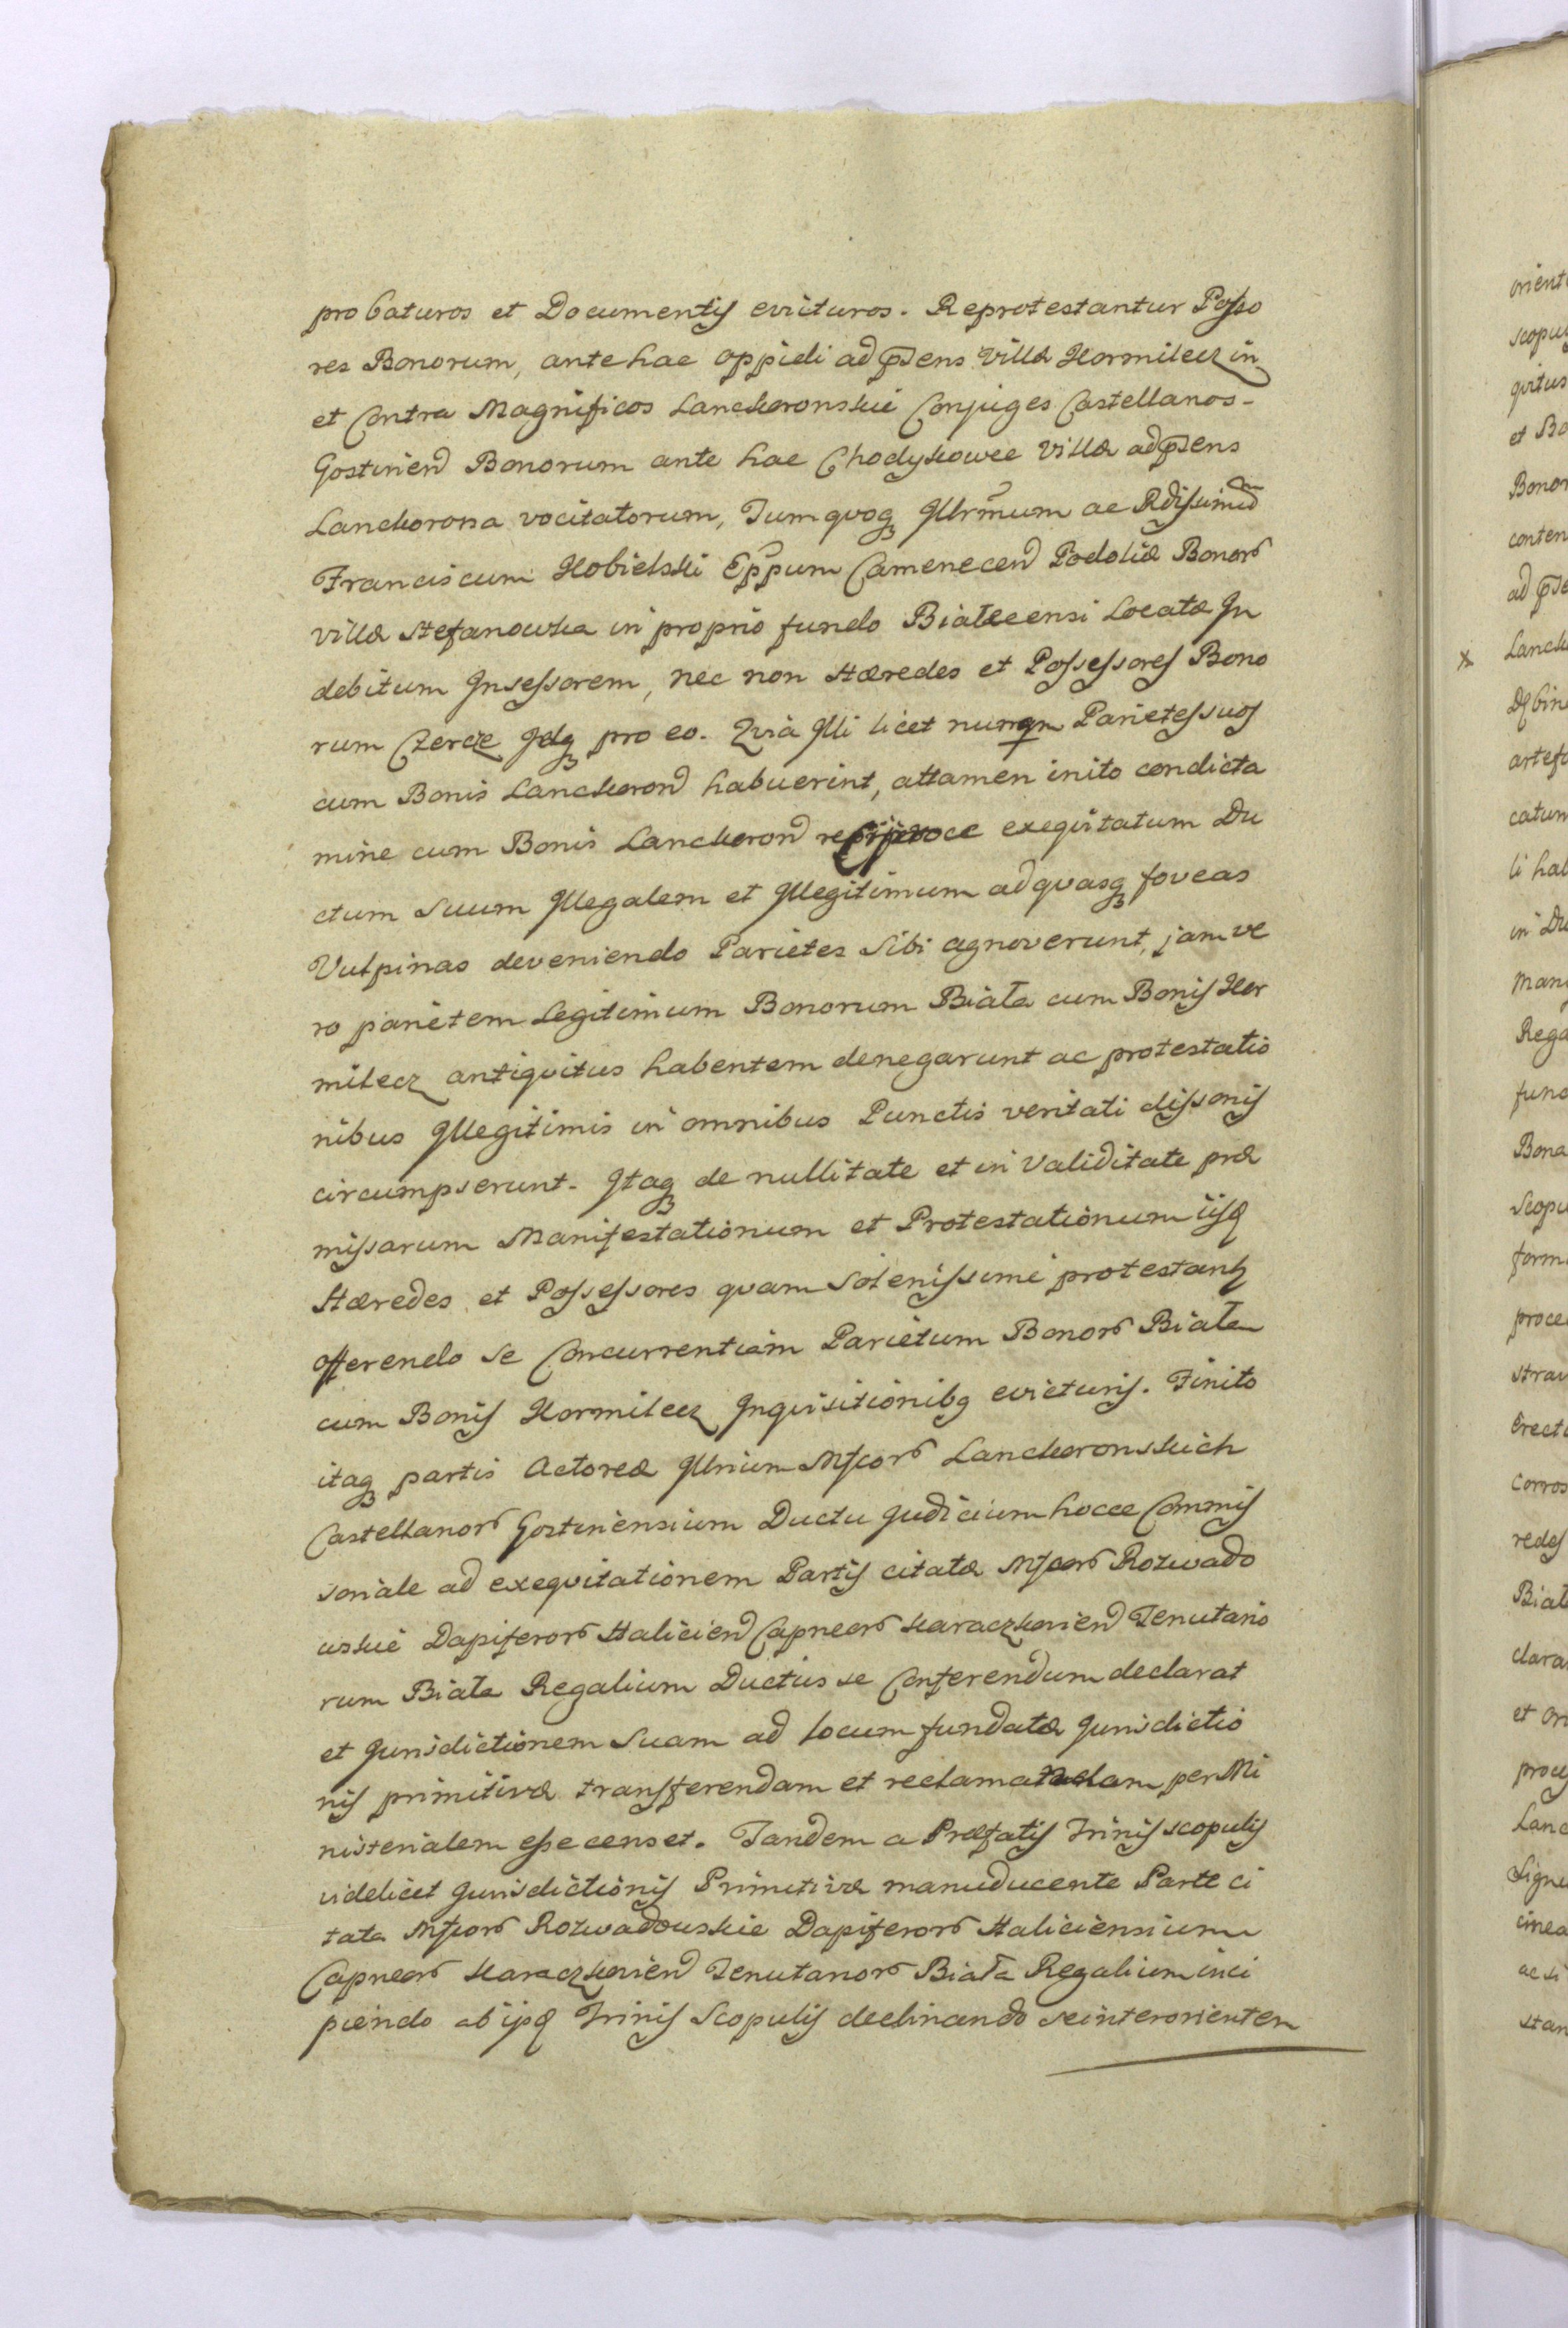 probaturos et Documentis evicturos. Reprotestantur Posso
res Bonorum, ante hac oppidi ad pñsens villæ Kormilecz in
et Contra Magnificos Lanckoronskie Conjuges Castellanos
Gostinien Bonorum ante hac Chodykowce Villæ ad pñsens
Lanckorona vocitatorum, Tum quoq Illrm̃um ac Rdissimum
Franciscum Kobielski Epp̃um Camenecen Podoliæ Bonor
villæ Stefanowka in proprio fundo Białecensi Locatæ In
debitum Insessorem, nec non Hæredes et Possessores Bono
rum Czercze Idq pro eo. Quia Illi licet nunqm Parietes suos
cum Bonis Lanckoron habuerint, attamen inito condicta
mine cum Bonis Lanckoron exequitatum Du
ctum Suum Illegalem et Illegitimum ad quasq foveas
Vulpinas deveniendo Parietes Sibi agnoverunt, jam ve
ro parietem Legitimum Bonorum Biała cum Bonis Kor
milecz antiquitus habentem denegarunt ac protestatio
nibus Illegitimis in omnibus Punctis veritati dissonis
circumpserunt. Itaq de nullitate et in Validitate præ
missarum Manifestationum et Protestationum iisd
Hæredes et Possessores quam Solenissime protestantr
offerendo se Concurrentiam Parietum Bonor Biała
cum Bonis Kormilecz Inquisitionibq evicturis. Finito
itaq partis Actoreæ Illrium Mfcor Lanckoronskich
Castellanor Gostinensium Ductu Judicium hocce Commis
soriale ad exequitationem Partis citatæ Mfcor Rozwado
wskie Dapiferor Halicien Capneor Karaczkovien Tenutario
rum Biała Regalium Ductus se Conferendum declarat
et Jurisdictionem Suam ad locum fundatæ Jurisdictio
nis primitivæ transferendam et reclamandam per Mi
nisterialem esse censet. Tandem a Præfatis Trinis scopulis
videlicet Jurisdictionis Primitivæ manuducente Parte ci
tata Mfcor Rozwadowskie Dapiferor Haliciensium
Capneor Karaczkovien Tenutarior Biała Regalium inci
piendo ab ijsd Trinis Scopulis declinando se inter orientem